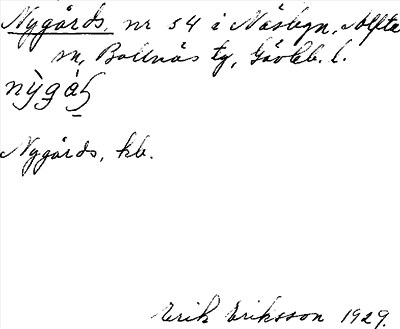 Nygårds, nr 54 i Näsbyn, Alfta
sn, Bollnäs tg, Gävleb. l.
Nygårds, kb.
Erik Eriksson 1929.